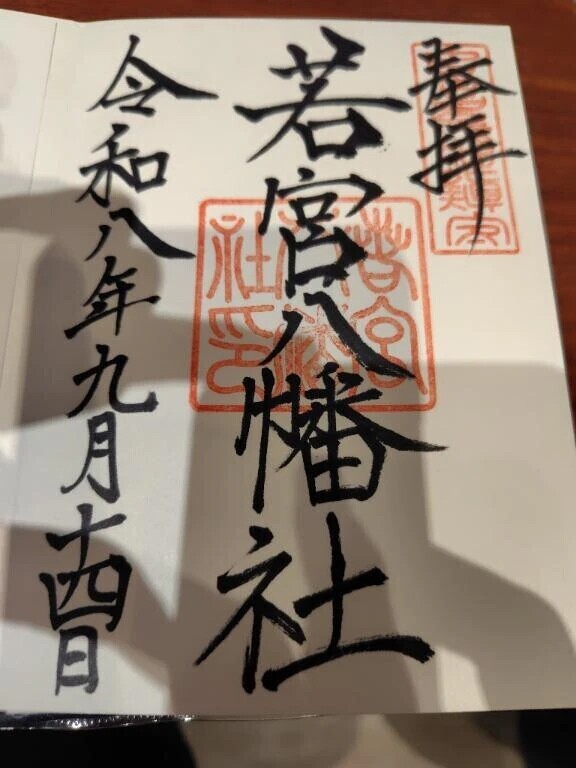 奉拝
若宮八幡社
令和八年九月十四日